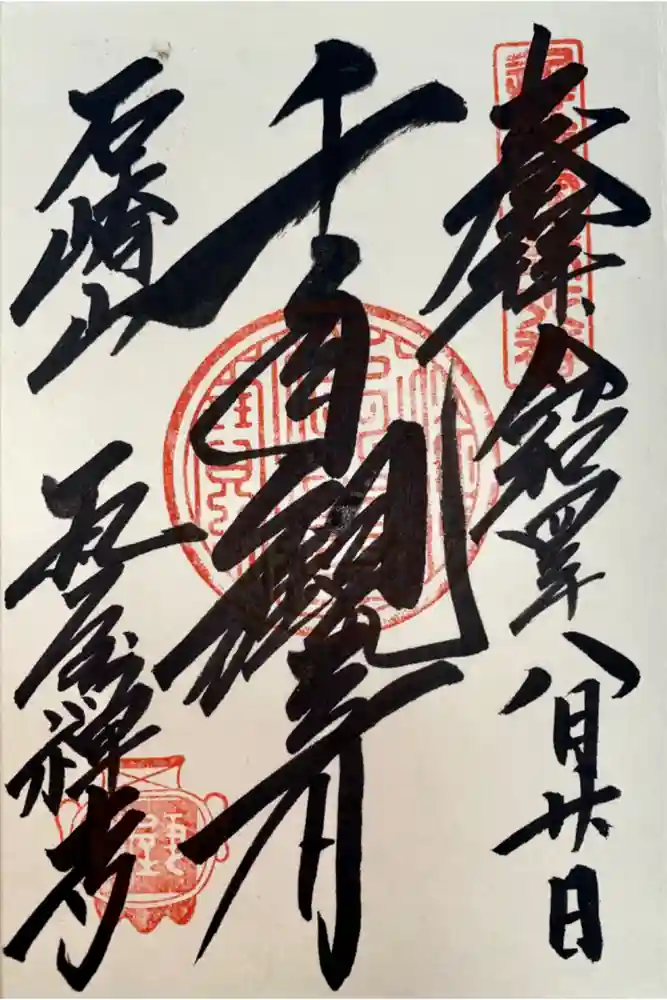 奉拝 令和四年 八月廿日
千手観音
石崎山 瓦屋禅寺